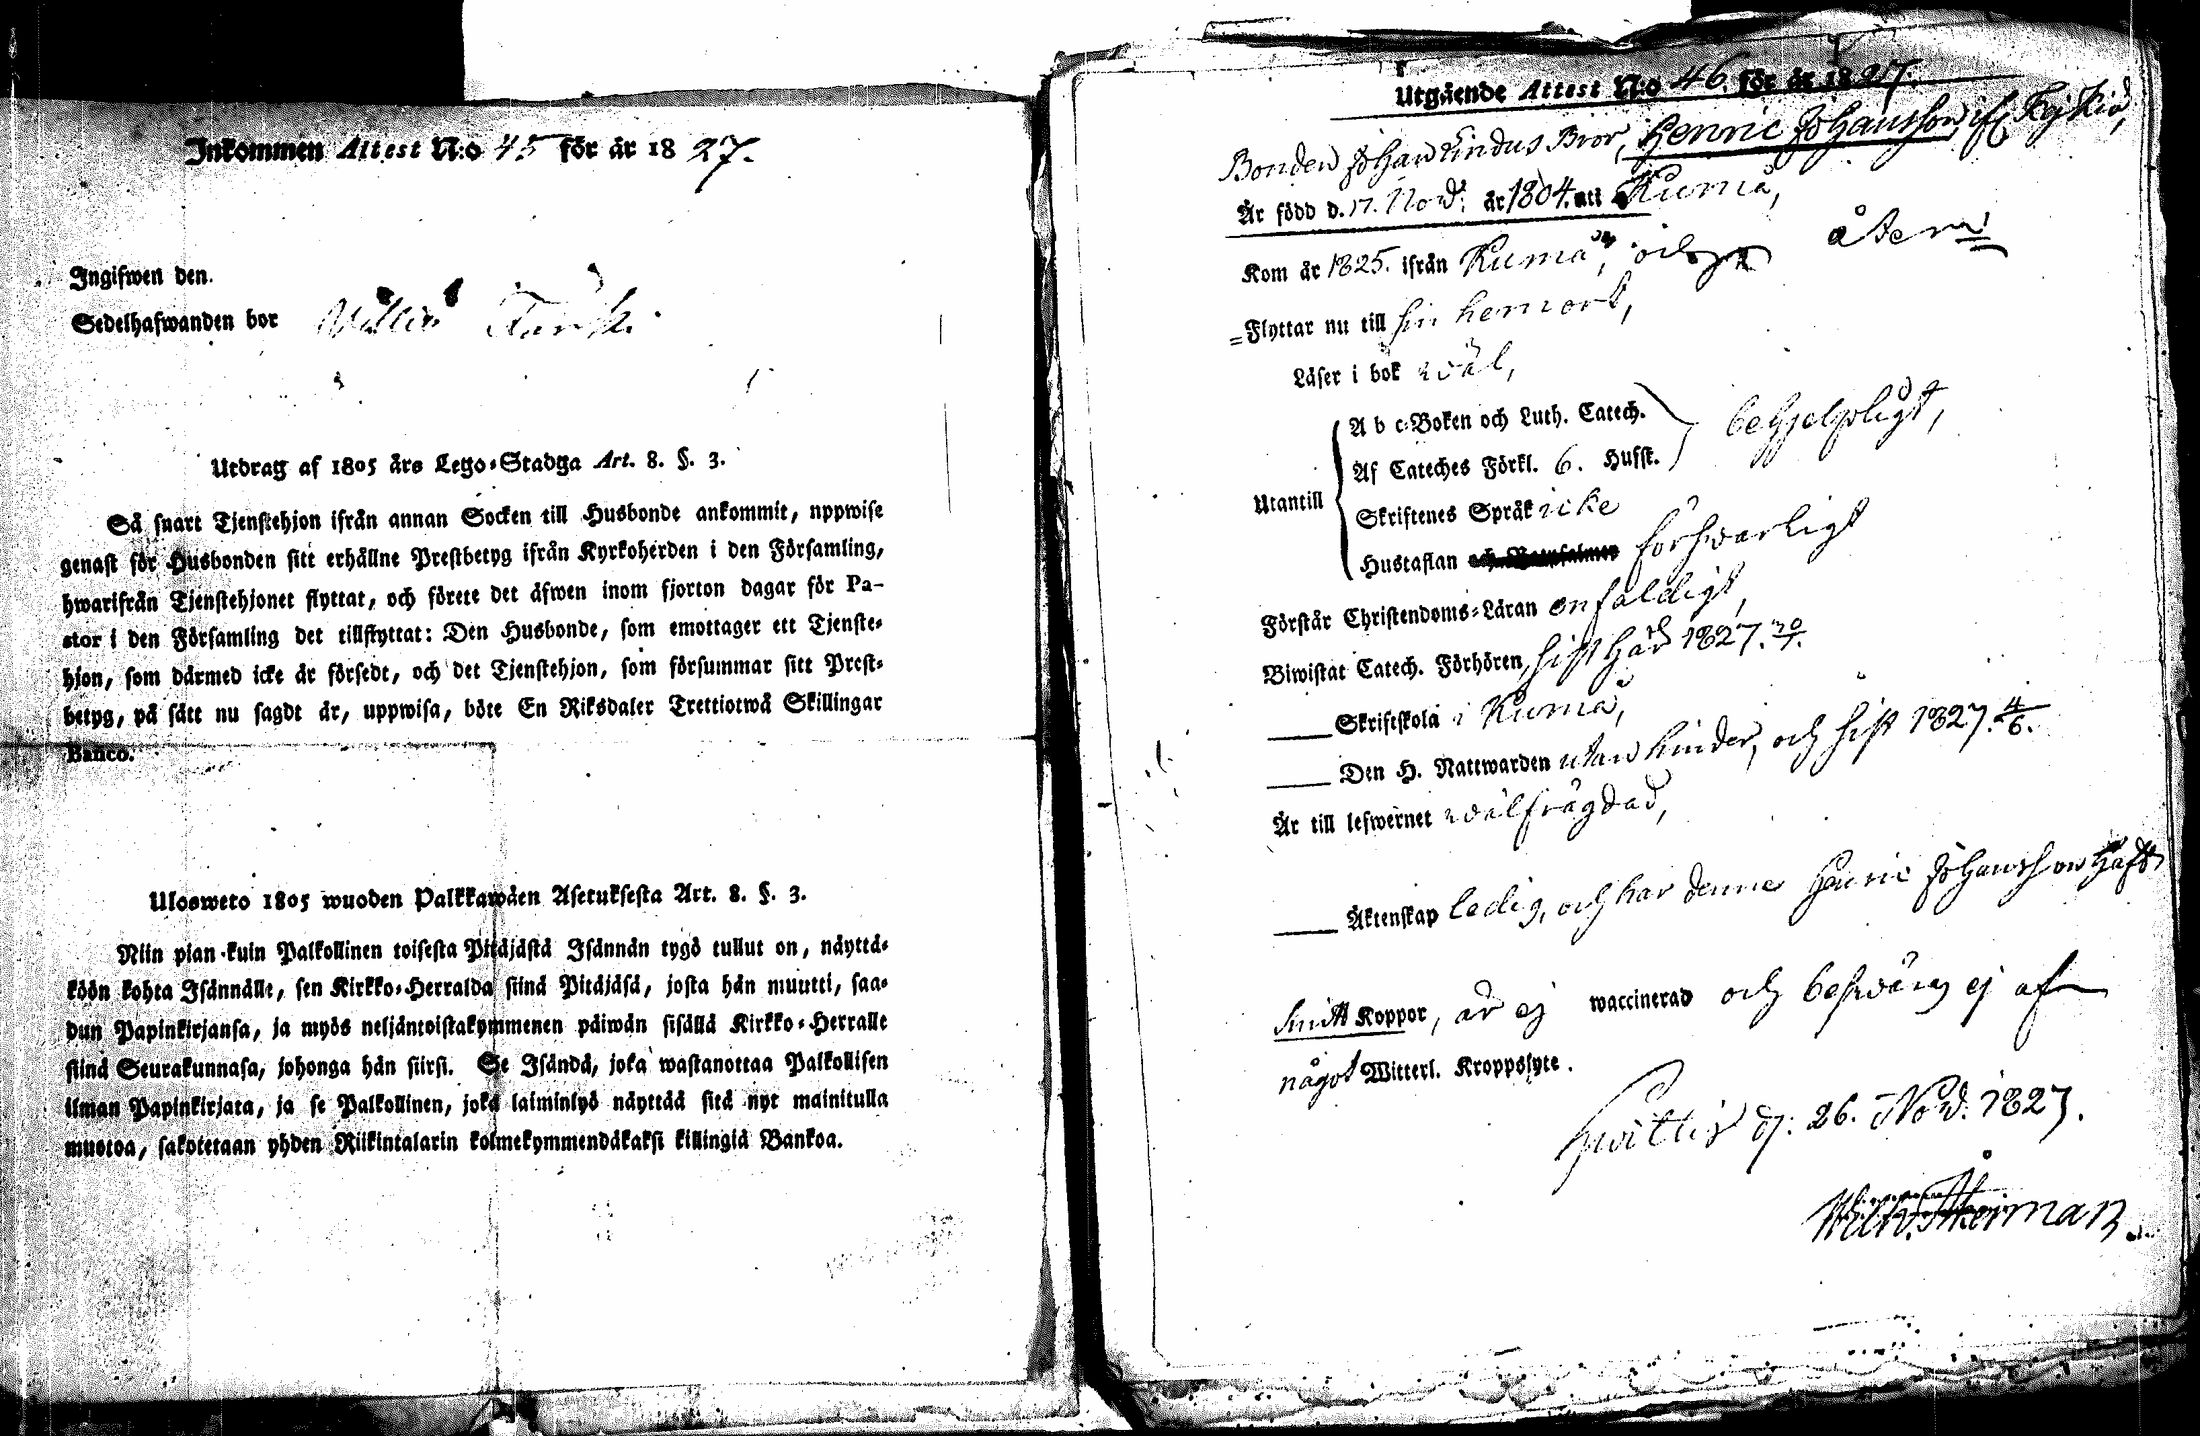 Inkommen Attest N:o 45 för år 1827.
Ingifwen den.
Sedelhafwanden bor
Utdrag af 1805 års Lego-Stadga Art. 8. §. 3.
Så snart Tjenstehjon ifrån annan Socken till Husbonde ankommit, uppwise
genast för Husbonden sitt erhållne Prestbetyg ifrån Kyrkoherden i den Församling,
hwarifrån Tjenstehjonet flyttat, och förete det äfwen inom fjorton dagar för Pa-
stor i den Församling det tillflyttat: Den Husbonde, som emottager ett Tjenste-
hjon, som därmed icke är försedt, och det Tjenstehjon, som försummar sitt Prest-
betyg, på sätt nu sagdt är, uppwisa, böte En Riksdaler Trettiotwå Skillingar
Banco.
Ulosweto 1805 wuoden Palkkawäen Asetuksesta Art. 8. §. 3.
Niin pian kuin Palkollinen toisesta Pitäjästä Isännän tygö tullut on, näyttä-
köön kohta Isännälle, sen Kirkko-Herralda siinä Pitäjäsä, josta hän muutti, saa-
dun Papinkirjansa, ja myös neljäntoistakymmenen päiwän sisällä Kirkko-Herralle
siinä Seurakunnasa, johonga hän siirsi. Se Isändä, joka wastanottaa Palkollisen
ilman Papinkirjata, ja se Palkollinen, joka laiminlyö näyttää sitä nyt mainitulla
muotoa, sakotetaan yhden Riikintalarin kolmekymmendäkaksi killingiä Bankoa.
Utgående Attest N:o 46. för år 1827.
Bonden Johan Lindus Bror, Henric Johansson, if.
Är född d. 17. Nov: år 1804. att Kumå,
Kom år 1825. ifrån Kumå, och åter
Flyttar nu till sin hemort,
Läser i bok wäl,
A b c-Boken och Luth. Catech.
behjelpligt,
Af Cateches Förkl. 6. Hufst.
Utantill
Skriftenes Språk icke
Hustaflan försvarligt
Förstår Christendoms-Läran enfaldigt,
Biwistat Catech. Förhören, sist här 1827.
Skriftskola i Kumå,
Den H. Nattwarden utan hinder, och sist 1827. 4/6.
Är till lefwernet wälfrägdad,
Äktenskap ledig, och har denne Henric Johansson haft
Koppor, är ej waccinerad och besväras ej af
något Witterl. Kroppslyte.
Hvittis d: 26. Nov. 1827.
Wilh. Åkerman